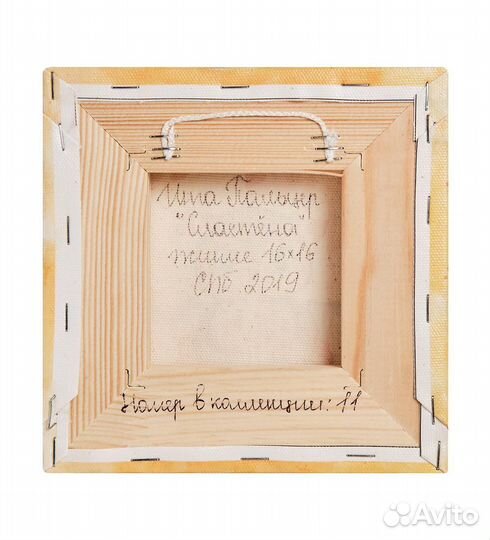 Ина Пальцер
"Сластёна"
жикле 16×16
СПб. 2019
Номер в коллекции: 11
Avito